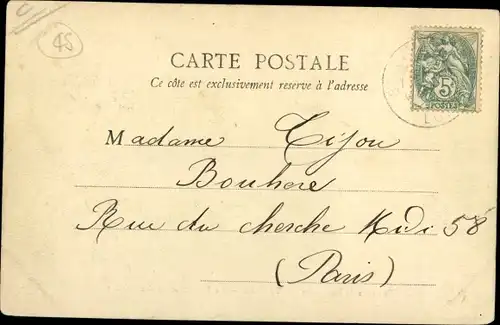 45
CARTE POSTALE
Ce côte est exclusivement reserve à l'adresse
5
POSTES
Madame Tijou
Bouhore
Rue du cherche Midi 58
(Paris)